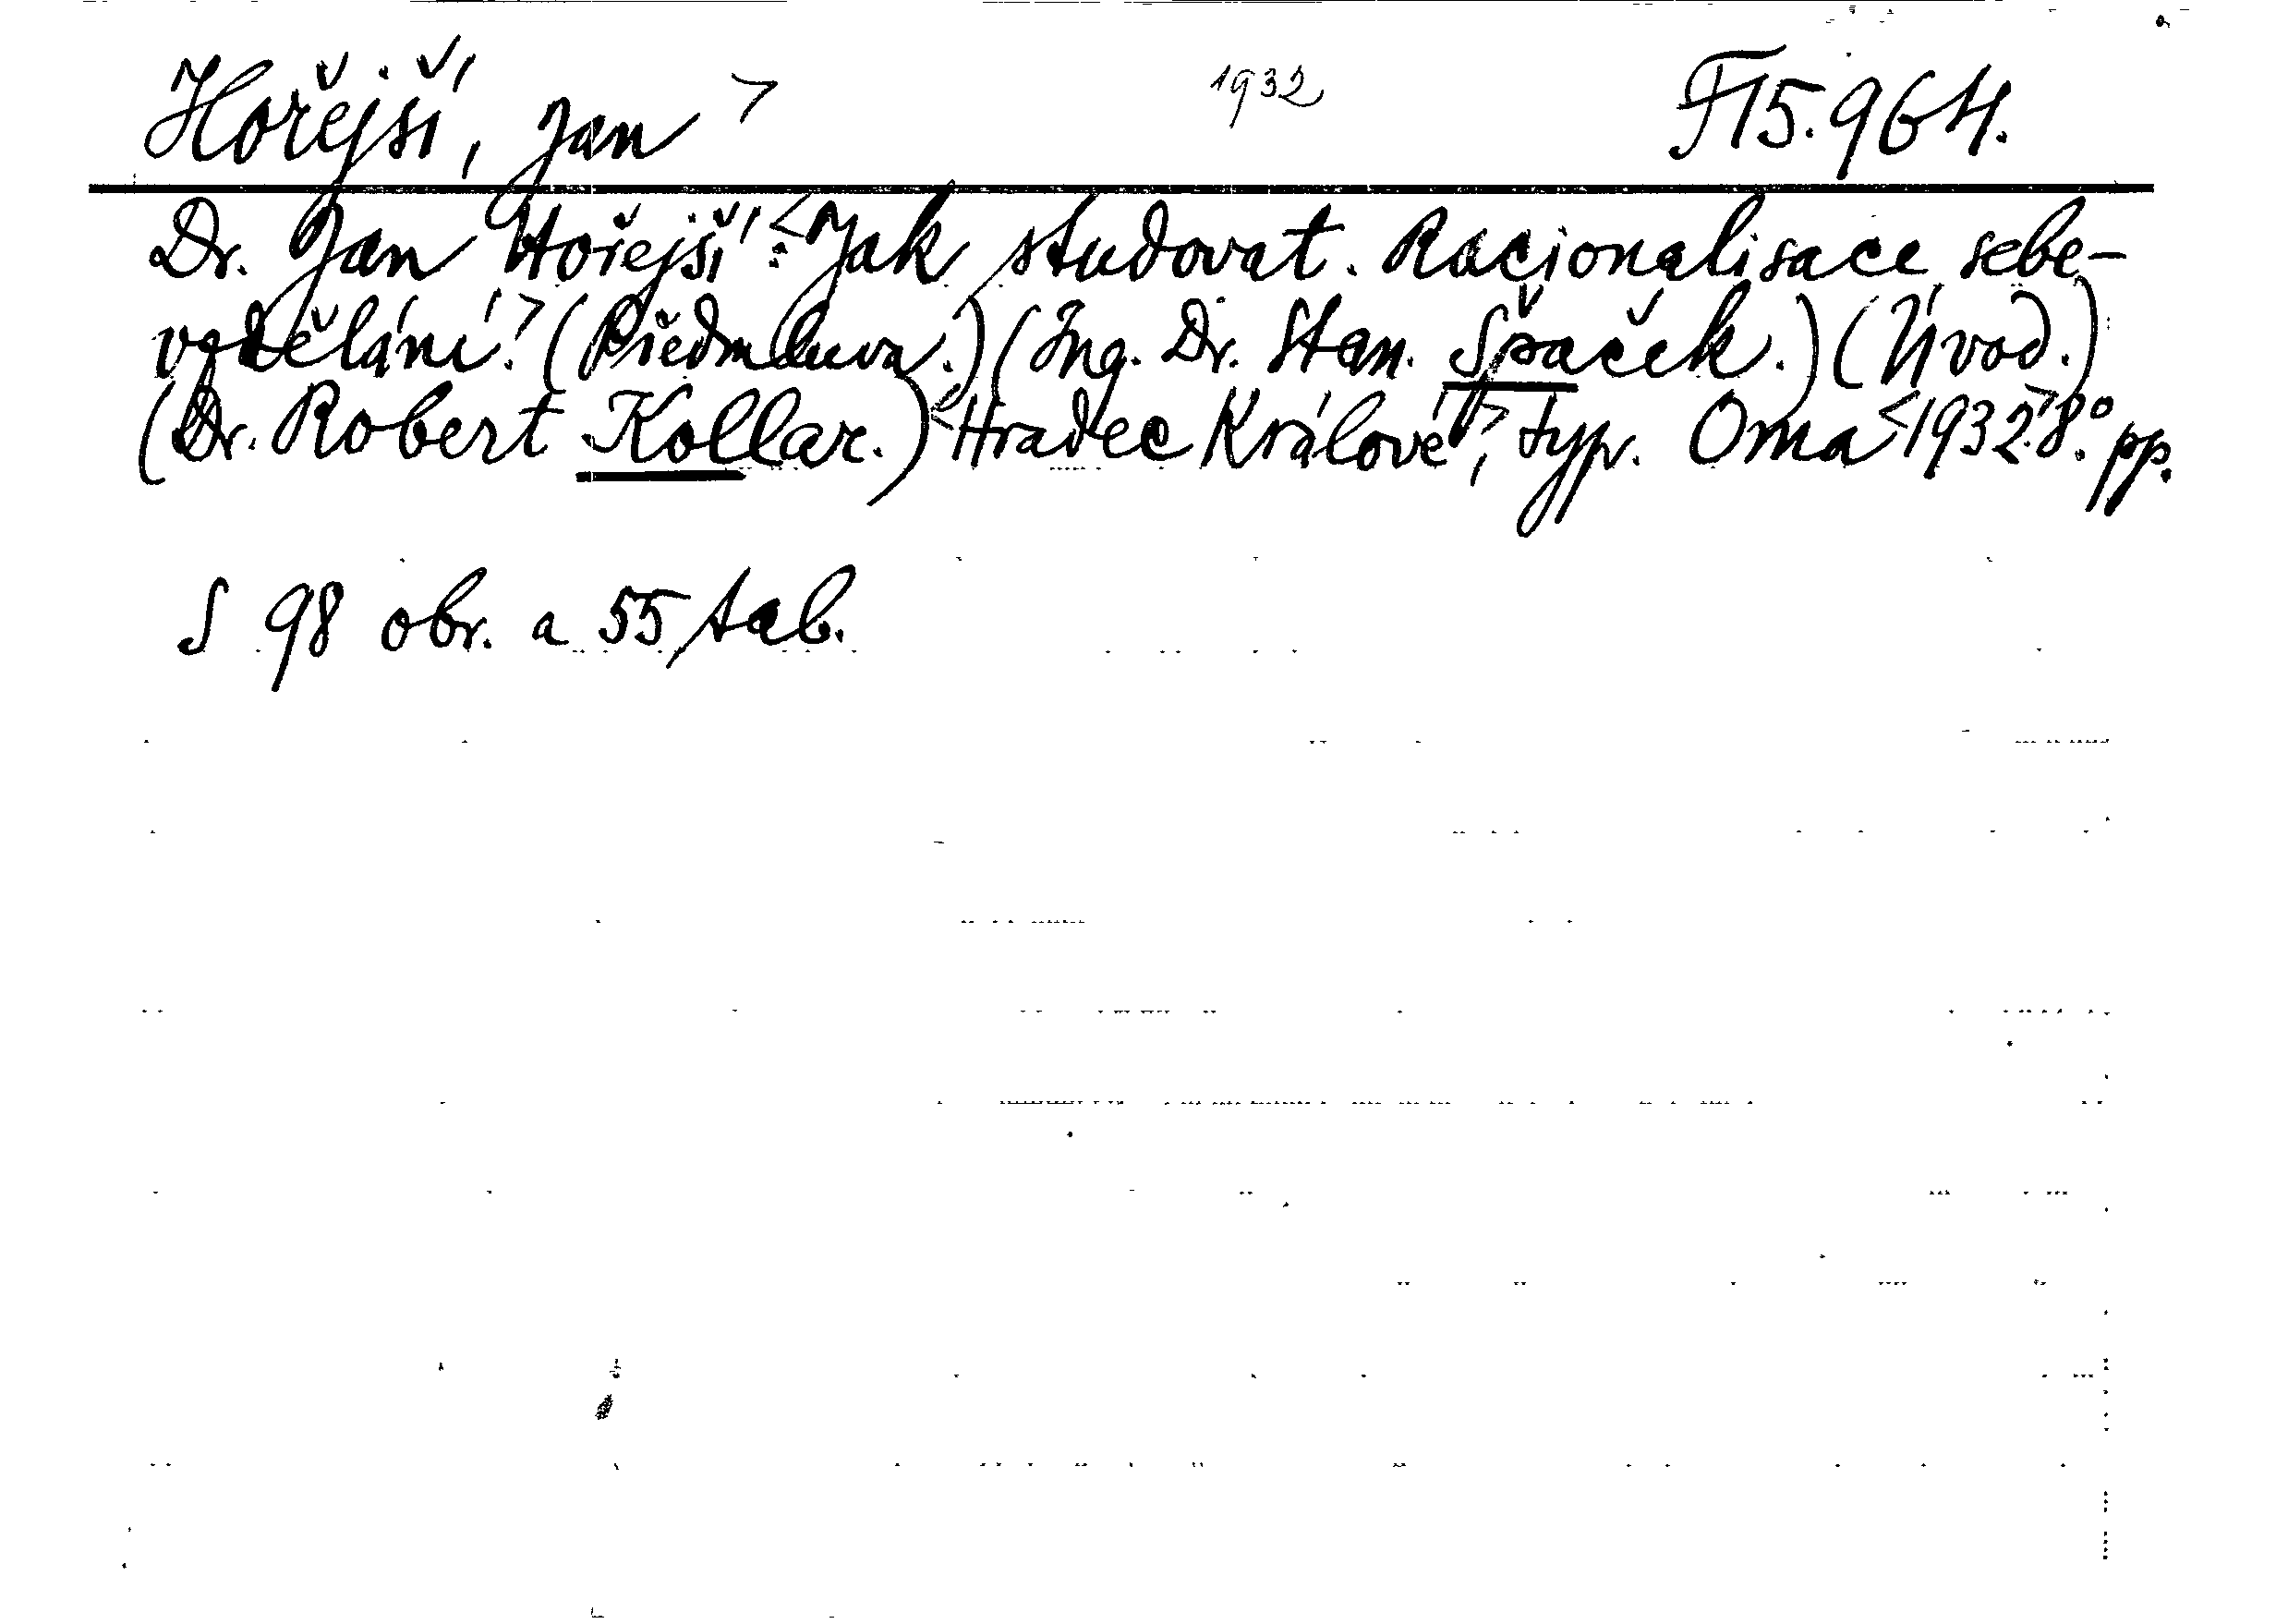 Hořejší, Jan > 1932 F 15.964.
Dr. Jan Hořejší: <Jak studovat. Racionalisace sebe-
vzdělání.> (Předmluva.) (Ing. Dr. Stan. Špaček.) (Úvod.)
(Dr. Robert Kollar.) <Hradec Králové>, typ. Oma <1932>. 8°. pp.
S 98 obr. a 55 tab.